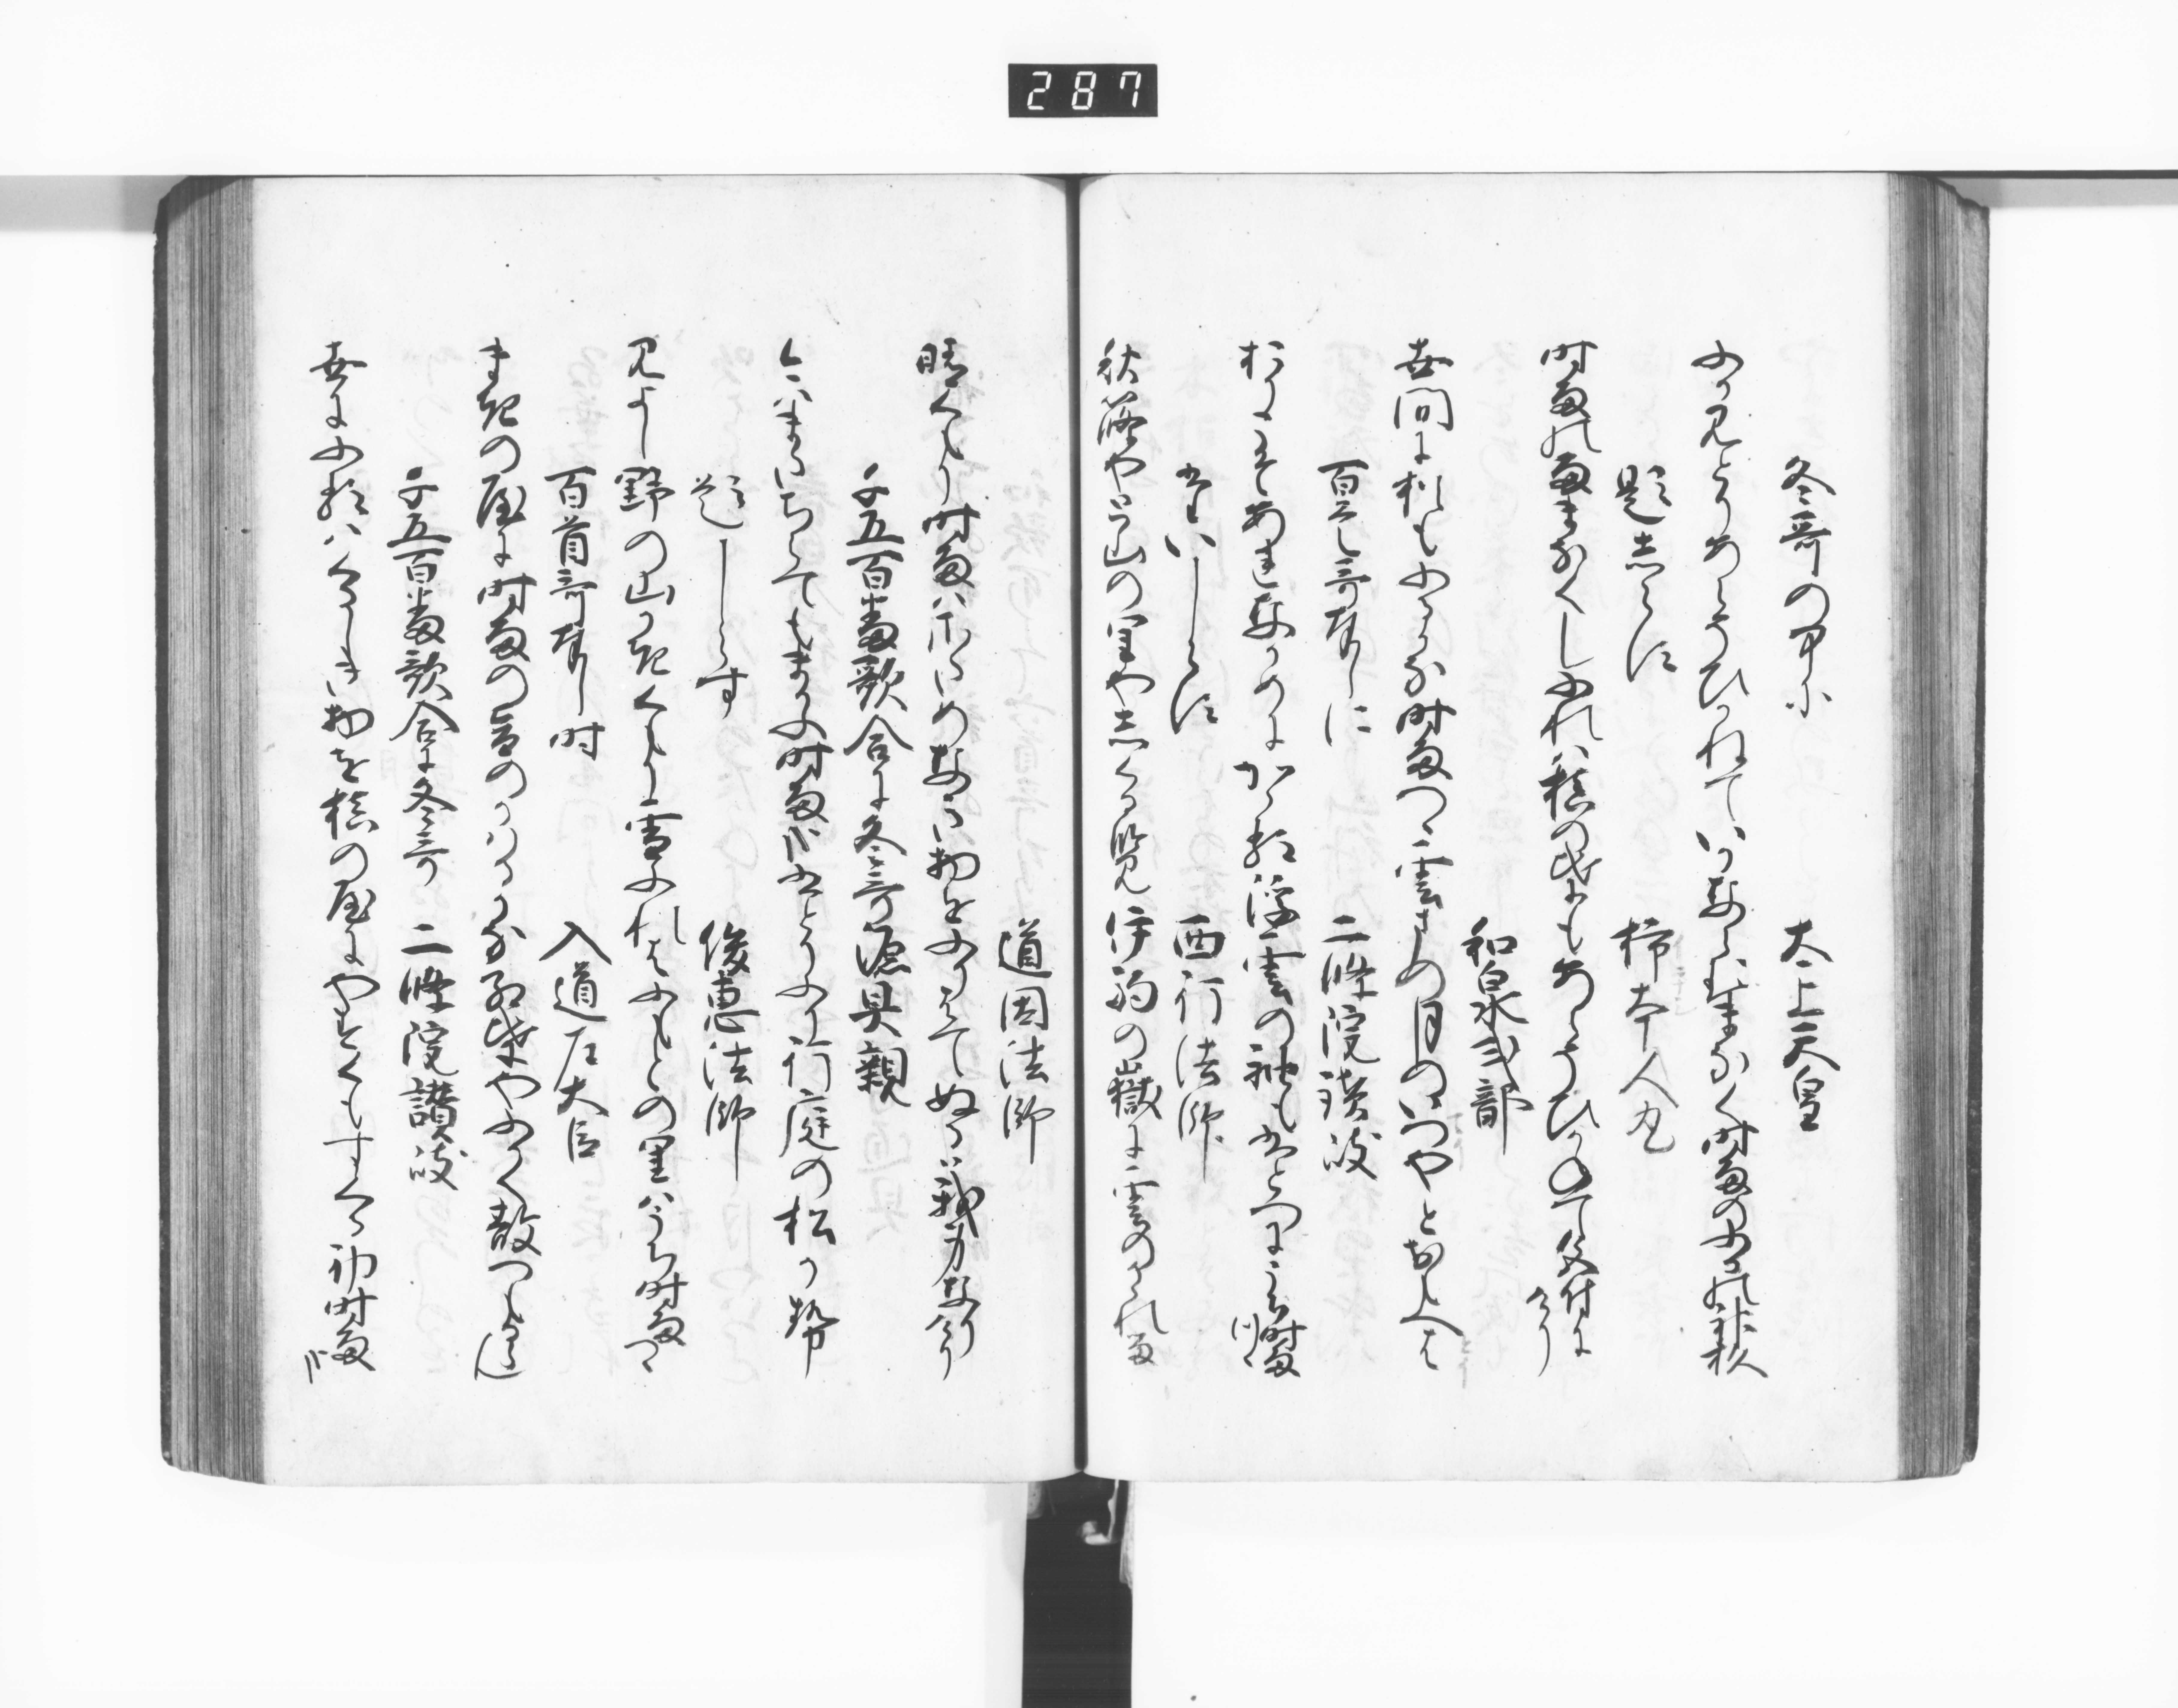 287
冬哥の中に　太上天皇
ふかみとりあらそひかねていかならむまなく時雨のふるの神杉
題しらす　柿本人丸
時雨の雨まなくしふれは槙の葉もあらそひかねて色付にけり
和泉式部
世間に猶もふるかな時雨つゝ雲まの月のいてやとおもへは
百首哥奉しに　二條院讃岐
おりこそあれなかめにかゝる浮雲の袖もひとつにうち時雨つゝ
題しらす　西行法師
秋篠やと山の里やしくる覧伊駒の嶽に雲のかゝれる
道因法師
晴くもり時雨はさためなき物をふりはてぬるは我身なりけり
千五百番歌合に冬哥　源具親
今はまたちらてもまかふ時雨哉ひとりふり行庭の松か勢
題しらす　俊恵法師
見よし野の山かきくもり雪ふれはふもとの里はうち時雨つゝ
百首哥奉し時　入道左大臣
まきの屋に時雨の音のかはるかな紅葉やふかく散つもる覧
千五百番歌合に冬哥　二條院讃岐
世にふるはくるしき物を槙の屋にやすくもすくる初時雨哉